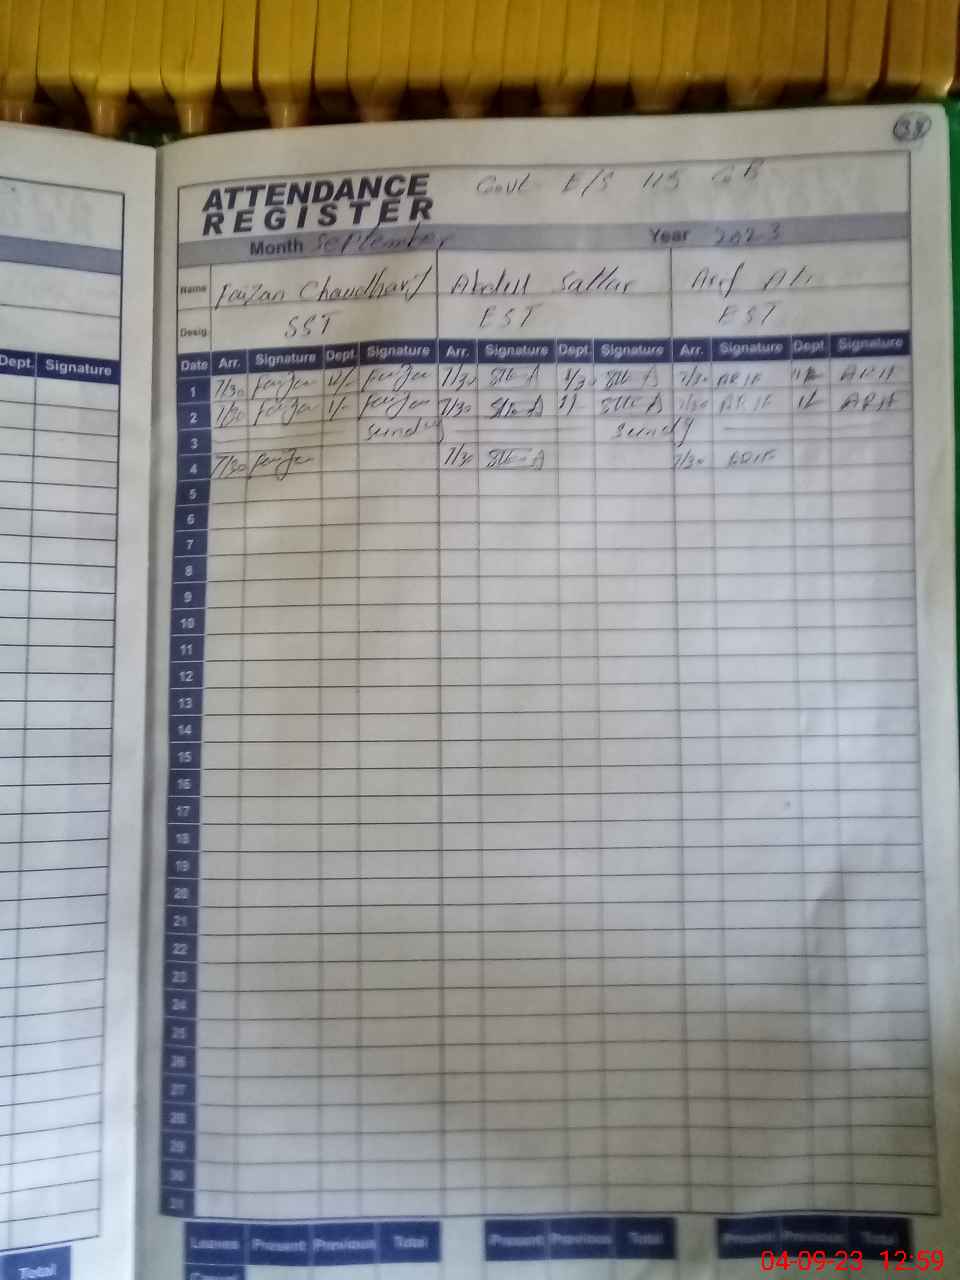 38
ATTENDANCE
REGISTER
Govt E/S 113 GB
Month September Year 2023
Name Faizan Chaudhary Abdul Sattar Arif Ali
Desig. SST EST EST
Dept. Signature
Date Arr. Signature Dept. Signature Arr. Signature Dept. Signature Arr. Signature Dept Signature
1 7/30 Faizan Faizan 7/30 7/30 ARIF ARIF
2 7/30 Faizan 1/- Faizan 7/30 7/30 ARIF ARIF
3 Sunday Sundy
4 7/30 Faizan 7/30 7/30 ARIF
5
6
7
8
9
10
11
12
13
14
15
16
17
18
19
20
21
22
23
24
25
26
27
28
29
30
31
Leaves Present Previous Total Present Previous Total Present Previous Total
Casual
Total
04-09-23 12:59